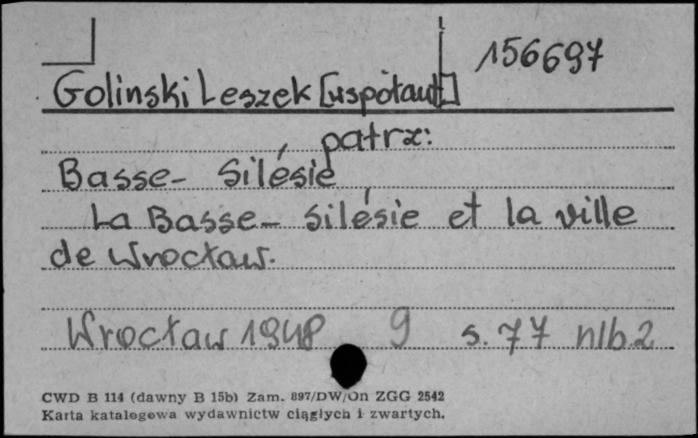 156697
Golinski Leszek [współaut.]
patrz:
Basse- Silésie
La Basse- Silésie et la ville
de Wrocław.
Wrocław 1948 9 s. 77 nlb. 2
CWD B 114 (dawny B 15b) Zam. 897/DW/On ZGG 2542
Karta katalogowa wydawnictw ciągłych i zwartych.